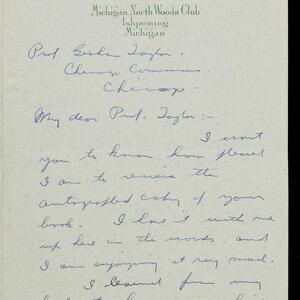 Michigan North Woods Club
Ishpeming
Michigan
Prof. Graham Taylor.
Chicago Commons.
Chicago.
My dear Prof. Taylor:-
I want
you to know how pleased
I am to receive the
autographed copy of your
book. I have it with me
up here in the woods, and
I am enjoying it very much.
I learned from my